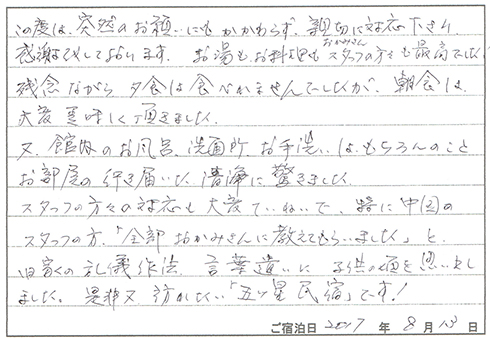 この度は、突然のお願いにもかかわらず、親切に対応下さり
感謝致しております。お湯もお料理もスタッフの方々も最高でした。
おかみさん
残念ながら夕食は食べれませんでしたが、朝食は、
大変美味しく頂きました。
又、館内のお風呂、洗面所、お手洗いは、もちろんのこと
お部屋の行き届いた、清浄に驚きました。
スタッフの方々の対応も大変ていねいで、特に中国の
スタッフの方、「全部おかみさんに教えてもらいました」と、
礼儀作法、言葉遣いに子供の頃を思い出し
ました。是非又訪れたい「五ツ星民宿」です!
ご宿泊日 2017 年 8 月 13 日